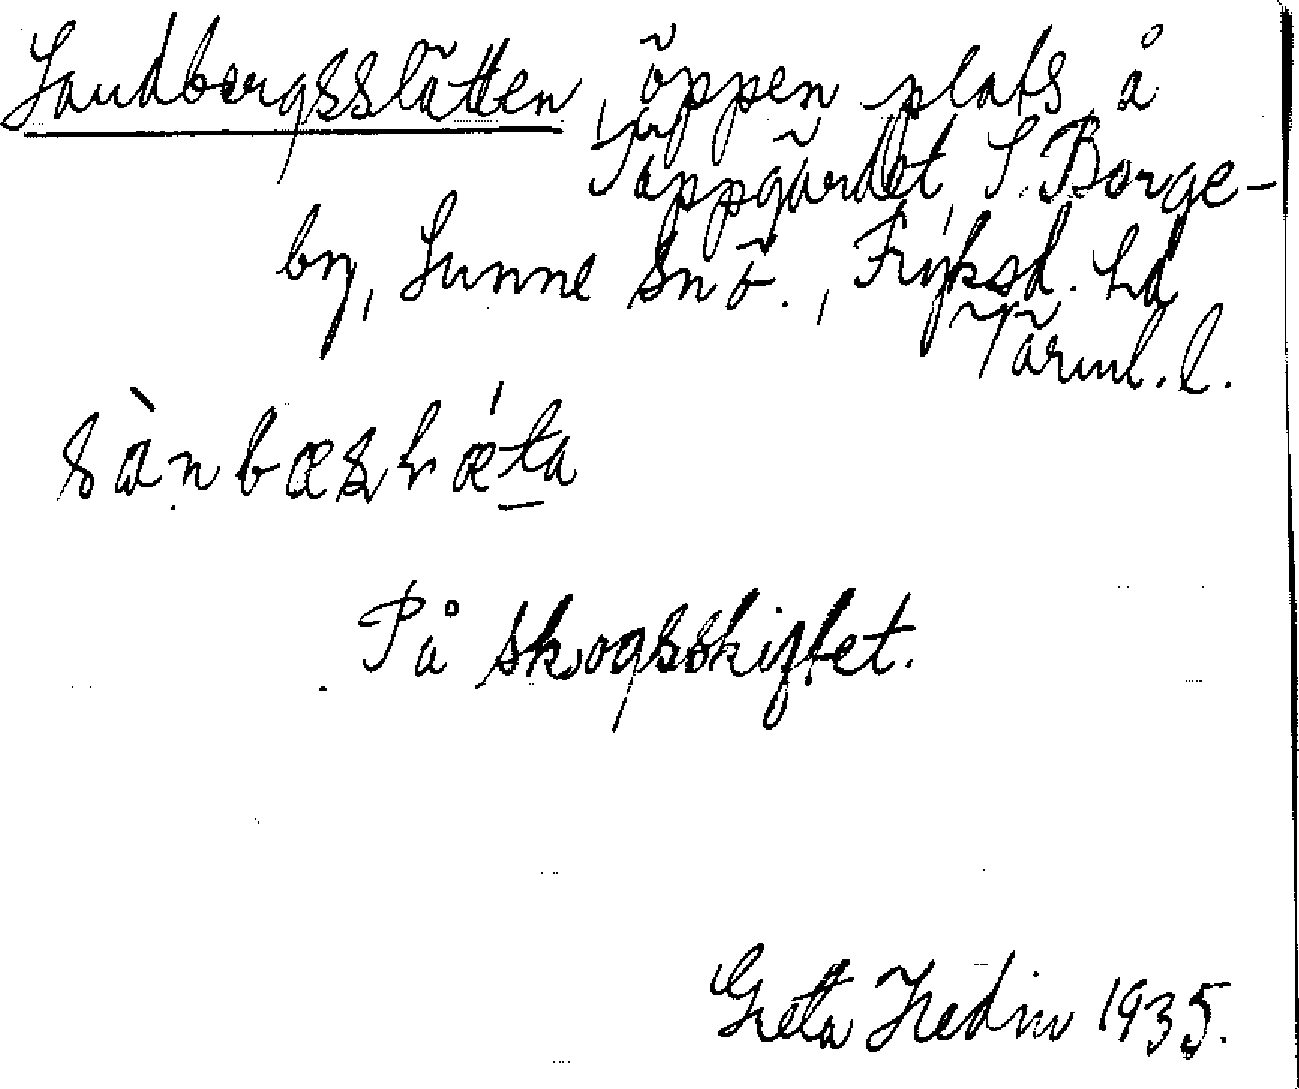 Sandbergsslätten, öppen plats å
Täppgärdet, S. Borge-
by, Sunne sn ö., Fryksd. hd
Värml. l.
På skogsskiftet.
Greta Hedin 1935.